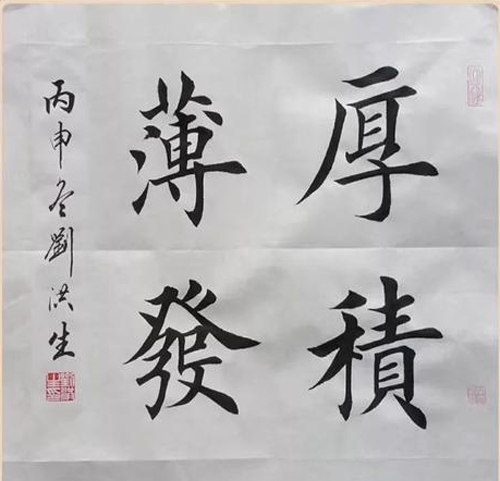 厚積
薄發
丙申冬劉洪生